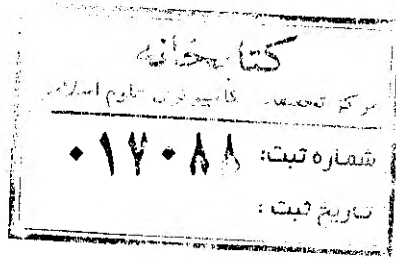 کتابخانه
مرکز تحقیقات کامپیوتری علوم اسلامی
شماره ثبت: ۰۱۷۰۸۸
تاریخ ثبت :